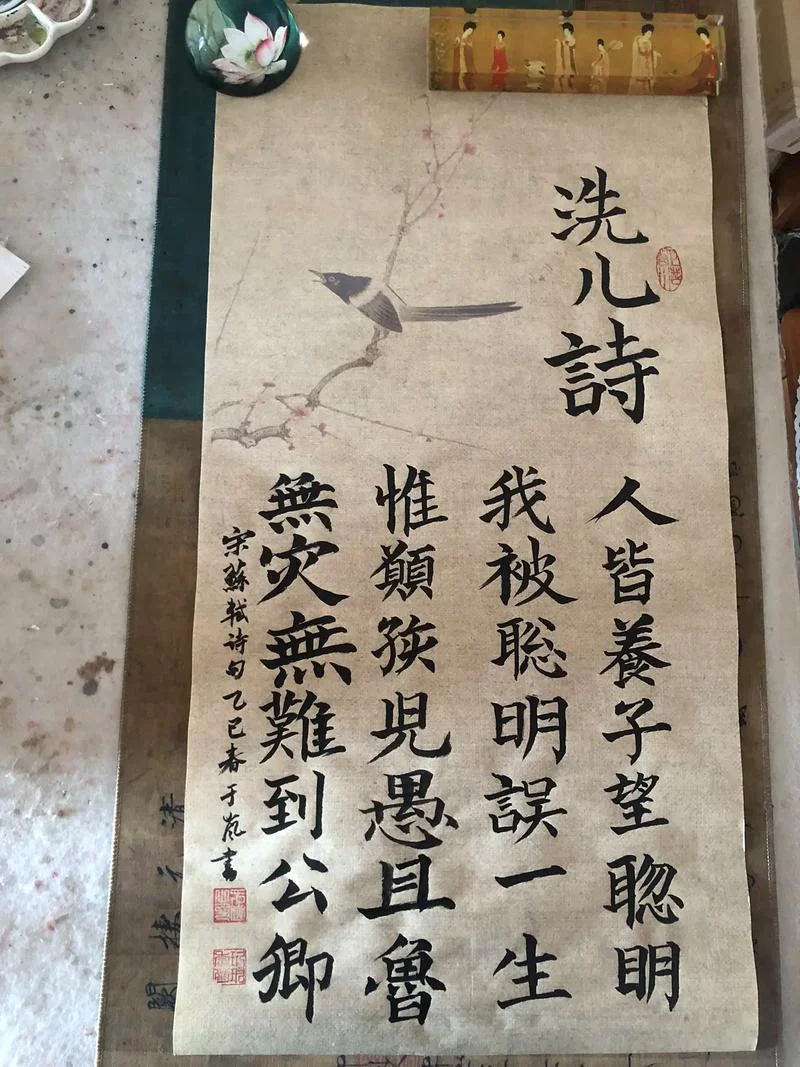 洗儿詩
人皆養子望聦明
我被聡明誤一生
惟願孩兒愚且魯
無灾無難到公卿
宋蘇軾诗句乙巳春于岚書